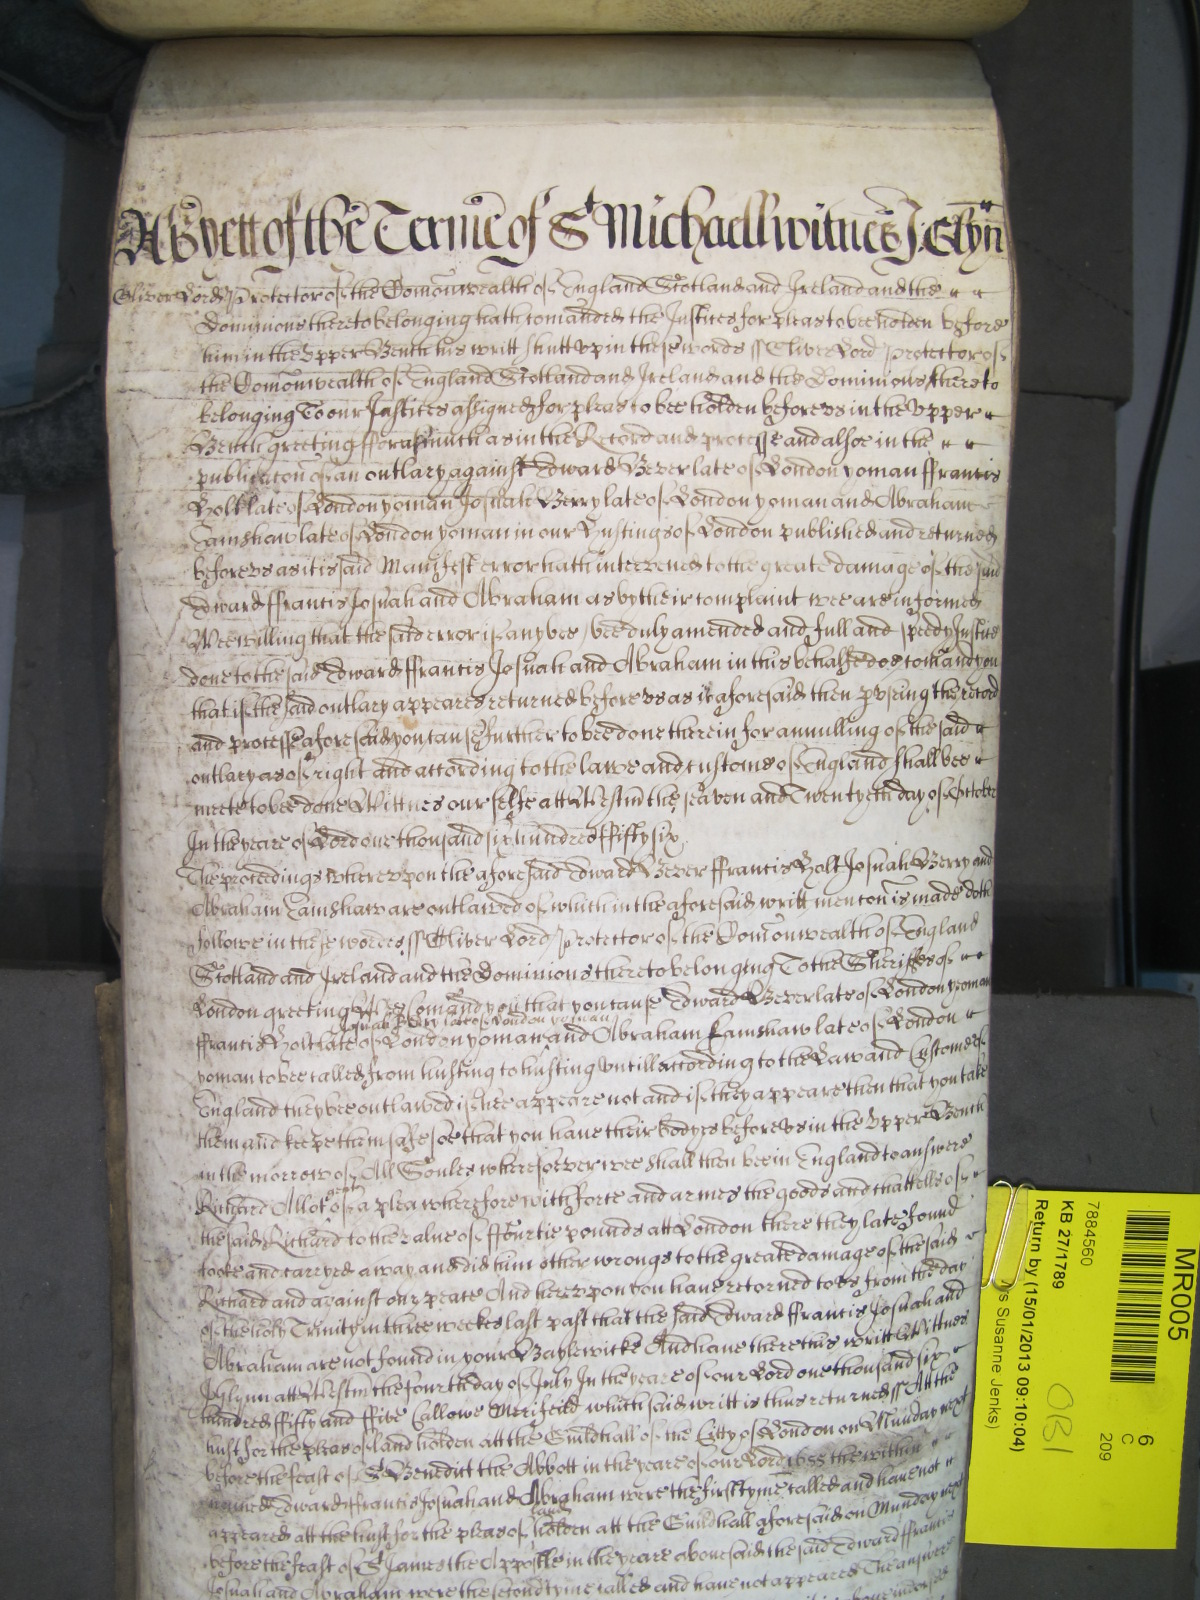 As yett of the Terme of St Michaell witnes J. Glyn
Oliver Lord Protector of the Comonwealth of England Scotland and Ireland and the
Dominions thereto belonging hath comanded the Justices for pleas to bee holden before
him in the Upper Bench his writt shutt up in these words ss Oliver Lord Protector of
the Comonwealth of England Scotland and Ireland and the Dominions thereto
belonging To our Justices assigned for pleas to bee holden before us in the Upper
Bench greeting fforasmuch as in the Record and processe and alsoe in the
publicacon of an outlary against Edward Bever late of London yoman ffrancis
Holt late of London yoman Josuah Berry late of London yoman and Abraham
Camshaw late of London yoman in our Hustings of London published and returned
before us as it is said Manifest error hath intervened to the greate damage of the said
Edward ffrancis Josuah and Abraham as by their complaint wee are informed
Wee willing that the said error if any bee / bee duly amended and full and speedy Justice
done to the said Edward ffrancis Josuah and Abraham in this behalfe doe comand you
that if the said outlary appeares returned before us as is aforesaid then the record
and processe aforesaid you cause further to bee done therein for annulling of the said
outlary as of right and according to the lawe and customs of England shall bee
meete to bee done Wittnes our selfe att Westm the seaven and Twentyeth day of October
In the yeare of Lord one thousand six hundred ffifty six
The proceedings whereupon the aforesaid Edward Bever ffrancis Holt Josuah Berry and
Abraham Camshaw are outlawed of which in the aforesaid writt mencon is made doth
followe in these wordes ss Oliver Lord Protector of the Comonwealth of England
Scotland and Ireland and the Dominions thereto belonging To the Sheriffes of
London greeting Wee comand you that you cause Edward Bever late of London yoman
Josuah Berry late of London yoman
ffrancis Holt late of London yoman and Abraham Camshaw late of London
yoman to bee called from husting to husting untill according to the Law and Custome of
England they bee outlawed if hee appeare not and if they appeare then that you take
them and keepe them safe soe that you have their bodyes before us in the Upper Bench
on the morrow of All Soules wheresoever wee shall then bee in England to answere
gent
Richard Allot of a plea wherefore with force and armes the goods and chattells of
the said Richard to the value of ffourtie pounds att London there they late found
tooke and carryed away and did him other wrongs to the greate damage of the said
Richard and against our peace And hereupon you have retorned to us from the day
of the holy Trinity in three weekes last past that the said Edward ffrancis Josuah and
Abraham are not found in your Baylewicke And have there this writt Wittnes
J Glynn att Westm the fourth day of July In the yeare of our Lord one thousand six
hundred ffifty and ffive Callowe Merifeild which said writt is thus returned ss Att the
hust for the pleas of land holden att the Guildhall of the Citty of London on Munday next
before the feast of St Benedict the Abbott in the yeare of our Lord 1655 the within
named Edward ffrancis Josuah and Abraham were the first tyme called and have not
land
appeared att the hust for the pleas of holden att the Guildhall aforesaid on Munday next
before the feast of St James the Appostle in the yeare abovesaid the said Edward ffrancis
Josuah and Abraham were the second tyme called and have not appeared The answere
MR005
6
C
209
7884560
KB 27/1789
Return by (15/01/2013 09:10:04)
s Susanne Jenks)
OBI